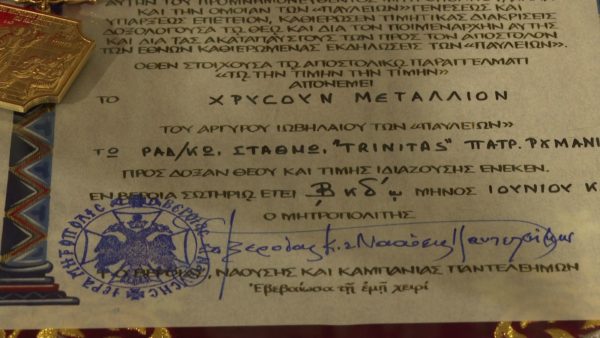 ΚΑΙ ΤΗΝ ΟΜΟΙΑΝ ΤΩΝ «ΠΑΥΛΕΙΩΝ» ΓΕΝΕΣΕΩΣ ΚΑΙ
ΥΠΑΡΞΕΩΣ ΕΠΕΤΕΙΟΝ, ΚΑΘΙΕΡΩΣΕΝ ΤΙΜΗΤΙΚΑΣ ΔΙΑΚΡΙΣΕΙΣ
ΔΟΞΟΛΟΓΟΥΣΑ ΤΩ ΘΕΩ ΚΑΙ ΔΙΑ ΤΟΝ ΠΟΙΜΕΝΑΡΧΗΝ ΑΥΤΗΣ
ΚΑΙ ΔΙΑ ΤΑΣ ΑΚΑΤΑΠΑΥΣΤΟΥΣ ΤΩΝ ΠΡΟΣ ΤΟΝ ΑΠΟΣΤΟΛΟΝ
ΤΩΝ ΕΘΝΩΝ ΚΑΘΙΕΡΩΜΕΝΑΣ ΕΚΔΗΛΩΣΕΙΣ ΤΩΝ «ΠΑΥΛΕΙΩΝ»
ΟΘΕΝ ΣΤΟΙΧΟΥΣΑ ΤΩ ΑΠΟΣΤΟΛΙΚΩ ΠΑΡΑΓΓΕΛΜΑΤΙ
«ΤΩ ΤΗΝ ΤΙΜΗΝ ΤΗΝ ΤΙΜΗΝ»
ΑΠΟΝΕΜΕΙ
ΤΟ ΧΡΥСΟΥΝ ΜΕΤΑΛΛΙΟΝ
ΤΟΥ ΑΡΓΥΡΟΥ ΙΩΒΗΛΑΙΟΥ ΤΩΝ «ΠΑΥΛΕΙΩΝ»
ΤΩ ΡΑΔ/ΚΩ. ΣΤΑΘΜΩ. "TRINITAS" ΠΑΤΡ. ΡΟΥΜΑΝΙ
ΠΡΟΣ ΔΟΞΑΝ ΘΕΟΥ ΚΑΙ ΤΙΜΗΣ ΙΔΙΑΖΟΥΣΗΣ ΕΝΕΚΕΝ.
ΕΝ ΒΕΡΟΙΑ ΣΩΤΗΡΙΩ ΕΤΕΙ ΜΗΝΟΣ ΙΟΥΝΙΟΥ Κ
Ο ΜΗΤΡΟΠΟΛΙΤΗΣ
Βεροίας κ. Ναούσης Παντελεήμων
† Ο ΒΕΡΟΙΑΣ, ΝΑΟΥΣΗΣ ΚΑΙ ΚΑΜΠΑΝΙΑΣ ΠΑΝΤΕΛΕΗΜΩΝ
Ἐβεβαίωσα τῇ ἐμῇ χειρί